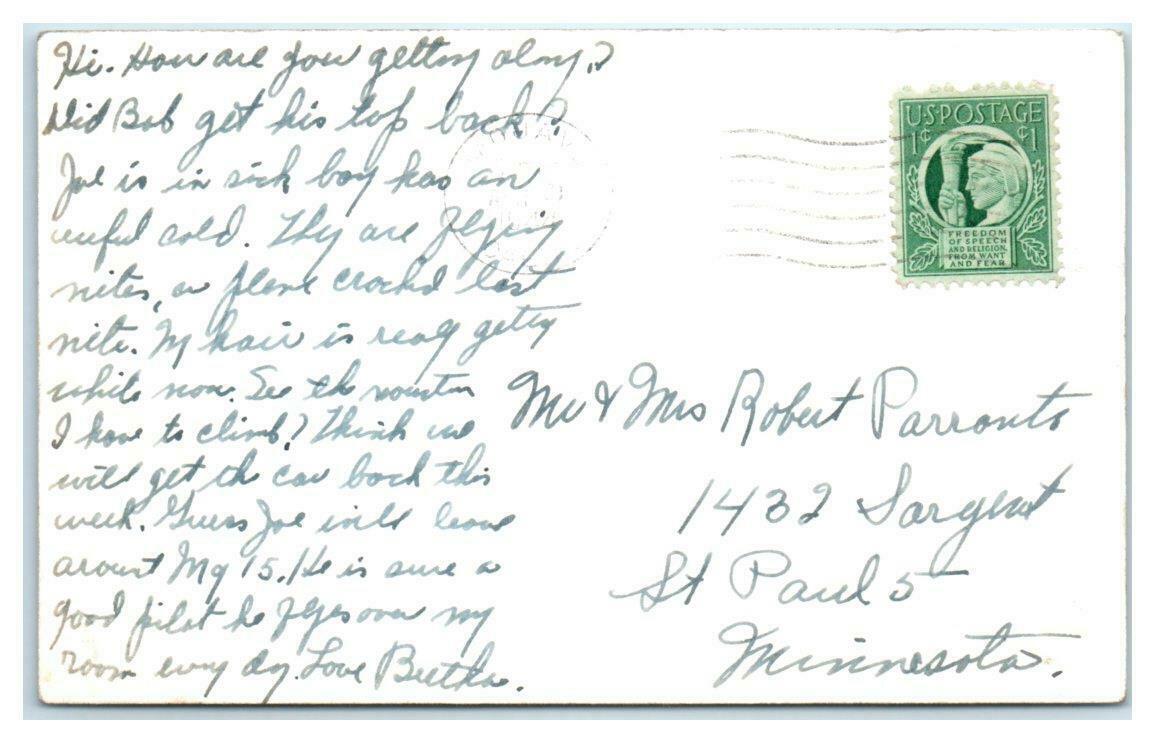 Hi. How are you getting along?
Did Bob get his top back?
Joe is in sick bay has an
awful cold. They are flying
nites, a plane crashed last
nite. My hair is really getting
white now. See the mountain
I have to climb? Think we
will get the car back this
week. Guess Joe will leave
around May 15. He is sure a
good pilot he flyes over my
room every day. Love Bertha.
U.S. POSTAGE
1¢ ¢1
FREEDOM
OF SPEECH
AND RELIGION,
FROM WANT
AND FEAR
Mr & Mrs Robert Parronto
1432 Sargent
St Paul 5
Minnesota.